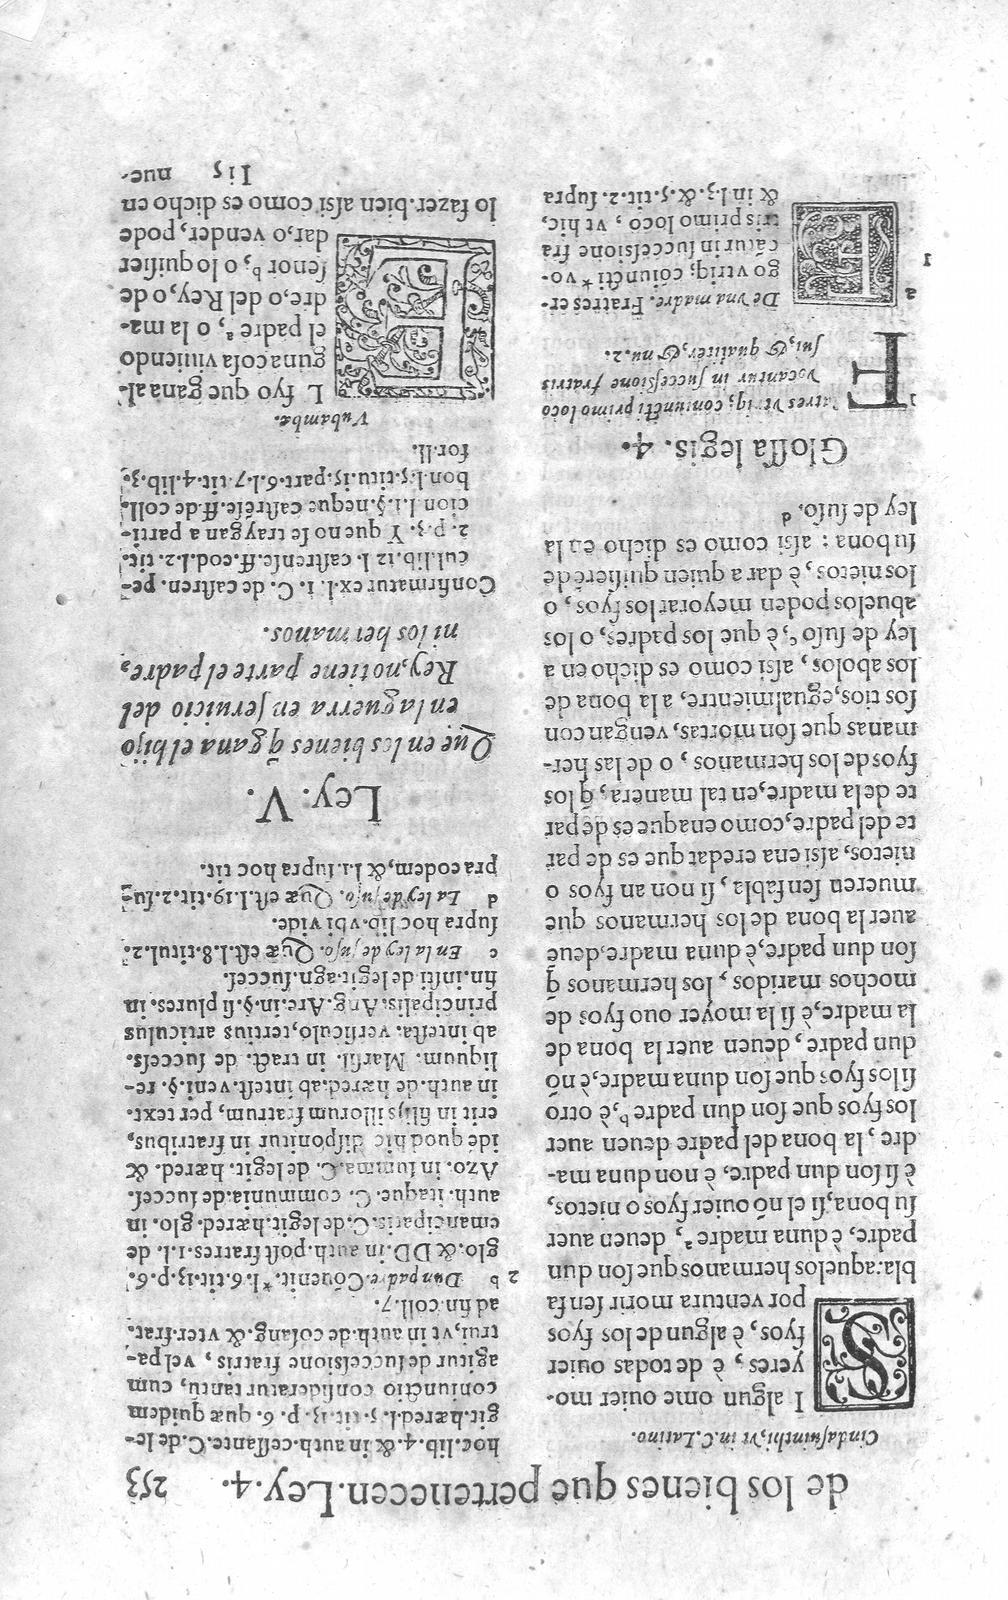 de los bienes que pertenecen.Ley.4. 253
Cindaſuinthi, vt in.C.Latino.
SI algun ome ouier mo-
yeres, è de todas ouier
fyos, è algun de los fyos
por ventura morir ſen fa
bla: aquelos hermanos que ſon dun
padre, è duna madre ª, deuen auer
ſu bona, ſi el nõ ouier fyos o nietos,
è ſi ſon dun padre, è non duna ma-
dre, la bona del padre deuen auer
los fyos que ſon dun padre ᵇ, è otro
ſi los fyos que ſon duna madre, è nõ
dun padre, deuen auer la bona de
la madre, è ſi la moyer ouo fyos de
mochos maridos, los hermanos q̃
ſon dun padre, è duna madre, deue
auer la bona de los hermanos que
mueren ſen fabla, ſi non an fyos o
nietos, aſsi ena eredat que es de par
te del padre, como ena que es de par
te dela madre, en tal manera, q̃ los
fyos de los hermanos, o de las her-
manas que ſon mortas, vengan con
ſos tios, egualmientre, a la bona de
los abolos, aſsi como es dicho en a
ley de ſuſo ᶜ, è que los padres, o los
abuelos poden meyorar los fyos, o
los nietos, è dar a quien quiſierẽ de
ſu bona: aſsi como es dicho en la
ley de ſuſo. ᵈ
Gloſſa legis. 4.
1 FRatres vtriq; coniuncti primi loco
vocantur in ſucceſsione fratris
ſui, & qualiter, & nu. 2.
a De vna madre. Fratres er-
go vtriq; coiũcti * vo-
1 cãtur in ſucceſsione fra
tris primo loco, vt hic,
& in l.3. & .5. tit. 2. ſupra
hoc. lib. 4. & in auth ceſſante. C. de le-
git. hæred. l. 5. tit. 13. p. 6. quæ quidem
coniunctio conſideratur tantũ, cum
agitur de ſucceſsione fratris, vel pa-
trui, vt in auth. de conſang. & vter. frat.
ad fin coll. 7.
2 b Dun padre. Cõuenit. * l. 6. tit. 13. p. 6.
glo. & DD. in auth. poſt fratres. 1. l. de
emancipatis. C. de legit. hæred. glo. in
auth. itaque. C. communia. de ſucceſ.
Azo. in ſumma. C. de legit. hæred. &
idẽ quod hic diſponitur in fratribus,
erit in filijs illorum fratrum, per text.
in auth. de hæred. ab inteſt. veni. §. re-
liquum. Marſil. in tract. de ſucceſs.
ab inteſta. verſiculo, tertius articulus
principalis. Ang. Are. in. §. ſi plures. in
fin. inſti. de legit. agn. ſucceſ.
c En la ley de ſuſo. Quæ eſt. l. 8. titul. 2.
ſupra hoc lib. vbi vide.
d La ley de ſuſo. Quæ eſt. l. 19. tit. 2. ſu-
pra eodem, & l. 1. ſupra hoc tit.
Ley. V.
Que en los bienes q̃ gana el hijo
en la guerra en ſeruicio del
Rey, no tiene parte el padre,
ni los hermanos.
Confirmatur ex l. 1. C. de caſtren. pe-
cul. lib. 12. l. caſtrenſe. ff. eod. l. 2. tit.
2. p. 3. Y que no ſe traygan a parti-
cion l. 1. §. neque caſtrẽſe. ff. de coll.
bon l. 5. titu. 15. part. 6. l. 7. tit. 4. lib. 3.
for. ll.
Vubambæ.
EL fyo que gana al-
guna coſa viuiendo
el padre ª, o la ma-
dre, o del Rey, o, de
ſenor ᵇ, o lo quiſier
dar, o vender, pode
lo fazer. bien aſsi como es dicho en
Ii 5 nue-